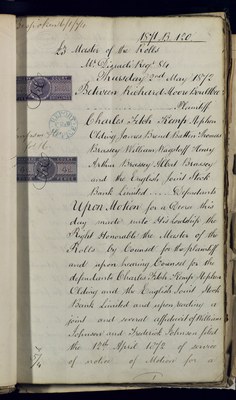 1871. B. 120
Master of the Rolls
Thursday 2nd May 1872
Between Richard Moore Boulter
Plaintiff
Charles Fitch Kemp Stephen
Olding James Brend Batten Thomas
Brassey William Henry
Arthur Brassey Albert Brassey
and the English Joint Stock
Bank Limited Defendants
Upon Motion for a Decree this
day made unto His Lordship the
Right Honorable the Master of the
Rolls by Counsel for the plaintiff
and upon hearing Counsel for the
defendants Charles Fitch Kemp Stephen
Olding and the English Joint Stock
Bank Limited and upon reading a
joint and several affidavit of William
Johnson and Frederick Johnson filed
the 12th April 1872 of service
of notice of Motion for a